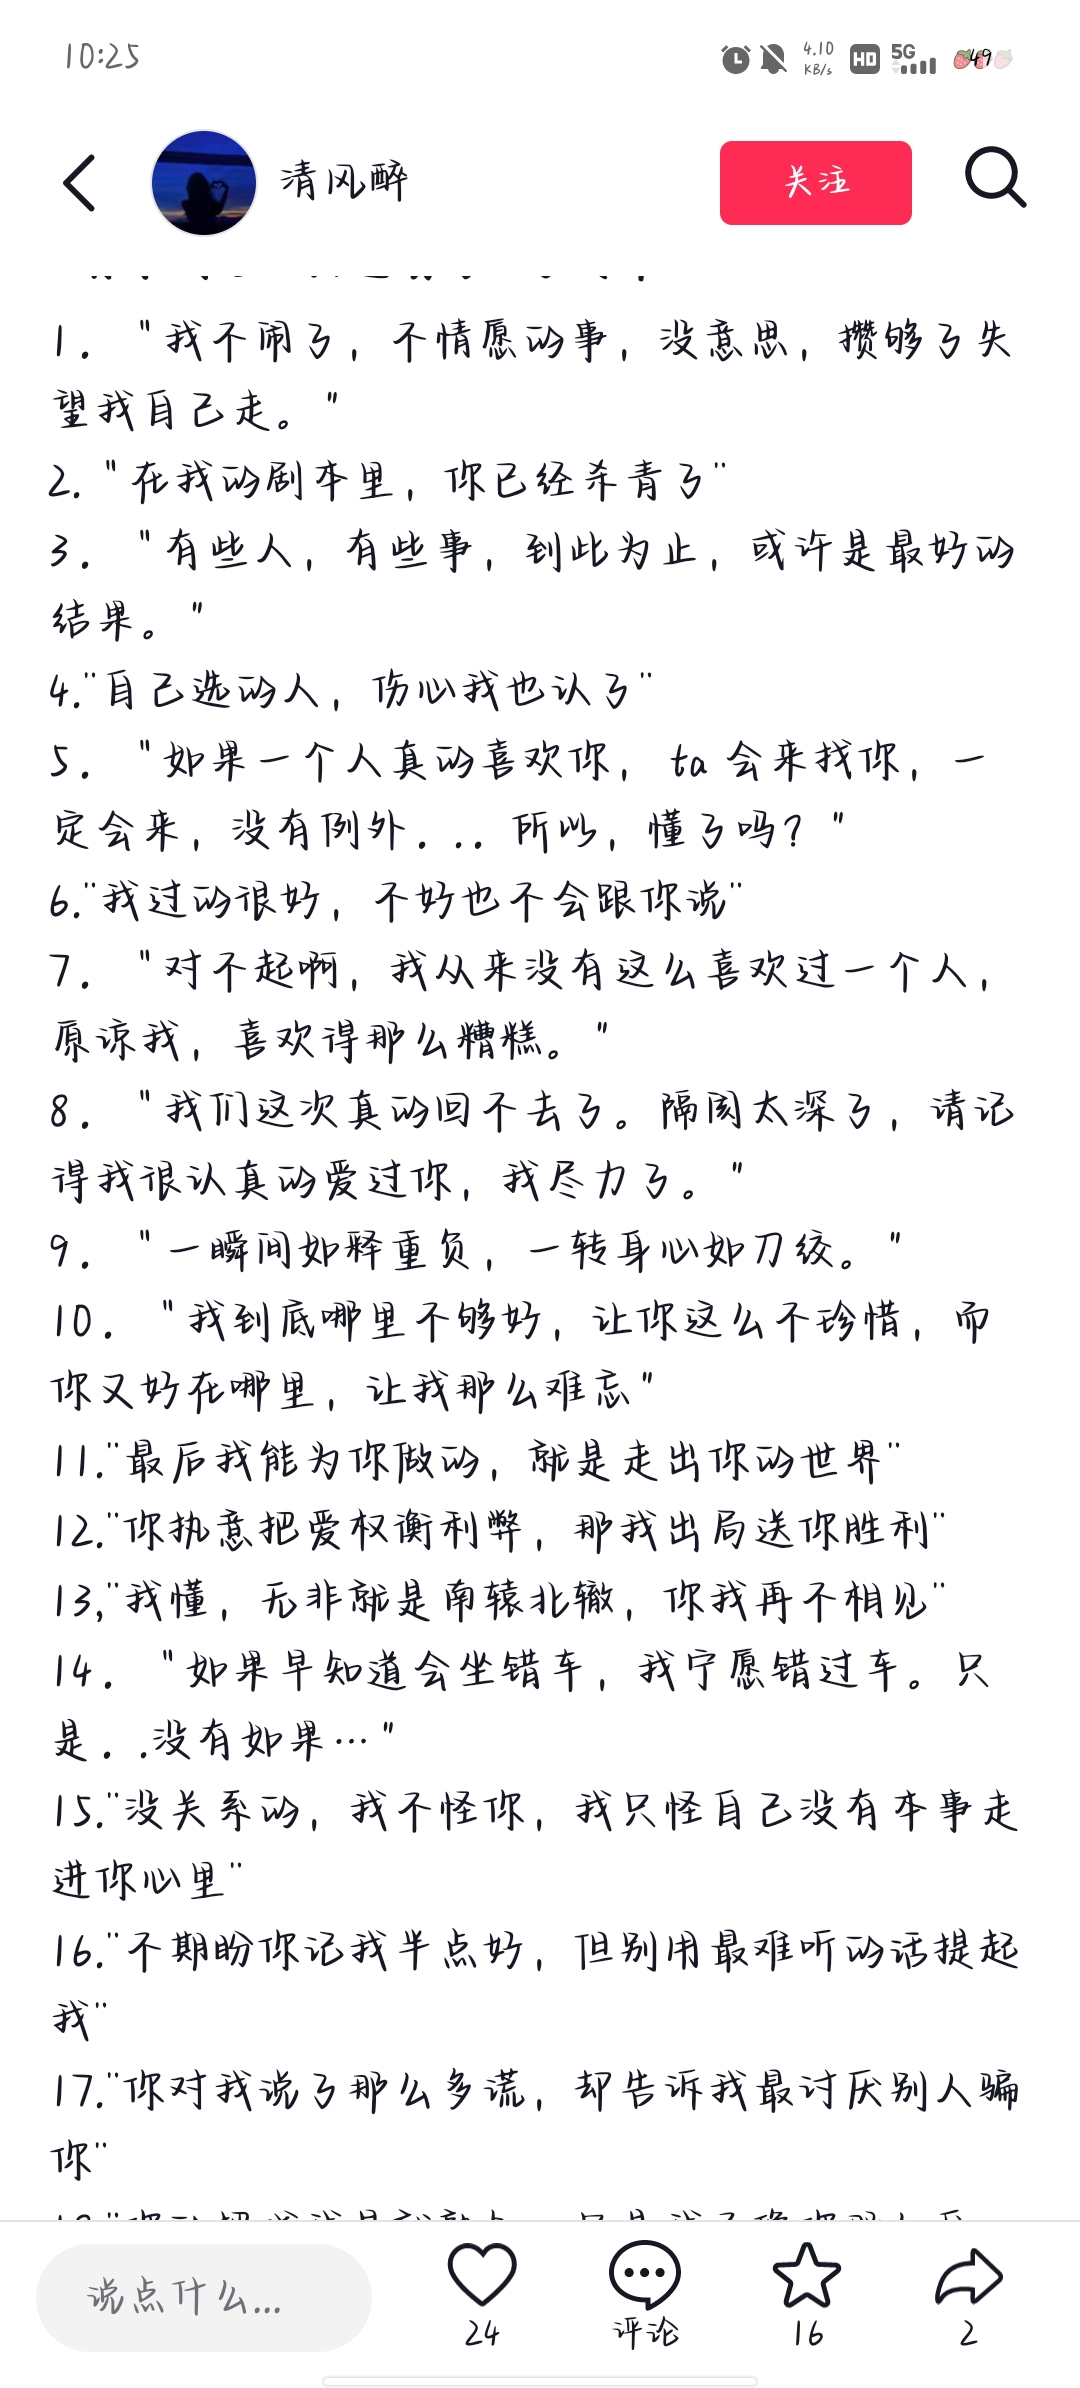 10:25
4.10 KB/s HD 5G 49
清风醉
关注
1. "我不闹了,不情愿的事,没意思,攒够了失
望我自己走。"
2."在我的剧本里,你已经杀青了"
3. "有些人,有些事,到此为止,或许是最好的
结果。"
4."自己选的人,伤心我也认了"
5. "如果一个人真的喜欢你, ta 会来找你,一
定会来,没有例外. .. 所以,懂了吗?"
6."我过的很好,不好也不会跟你说"
7. "对不起啊,我从来没有这么喜欢过一个人,
原谅我,喜欢得那么糟糕。"
8. "我们这次真的回不去了。隔阂太深了,请记
得我很认真的爱过你,我尽力了。"
9. "一瞬间如释重负,一转身心如刀绞。"
10. "我到底哪里不够好,让你这么不珍惜,而
你又好在哪里,让我那么难忘"
11."最后我能为你做的,就是走出你的世界"
12."你执意把爱权衡利弊,那我出局送你胜利"
13,"我懂,无非就是南辕北辙,你我再不相见"
14. "如果早知道会坐错车,我宁愿错过车。只
是. .没有如果…"
15."没关系的,我不怪你,我只怪自己没有本事走
进你心里"
16."不期盼你记我半点好,但别用最难听的话提起
我"
17."你对我说了那么多谎,却告诉我最讨厌别人骗
你"
说点什么...
24 评论 16 2